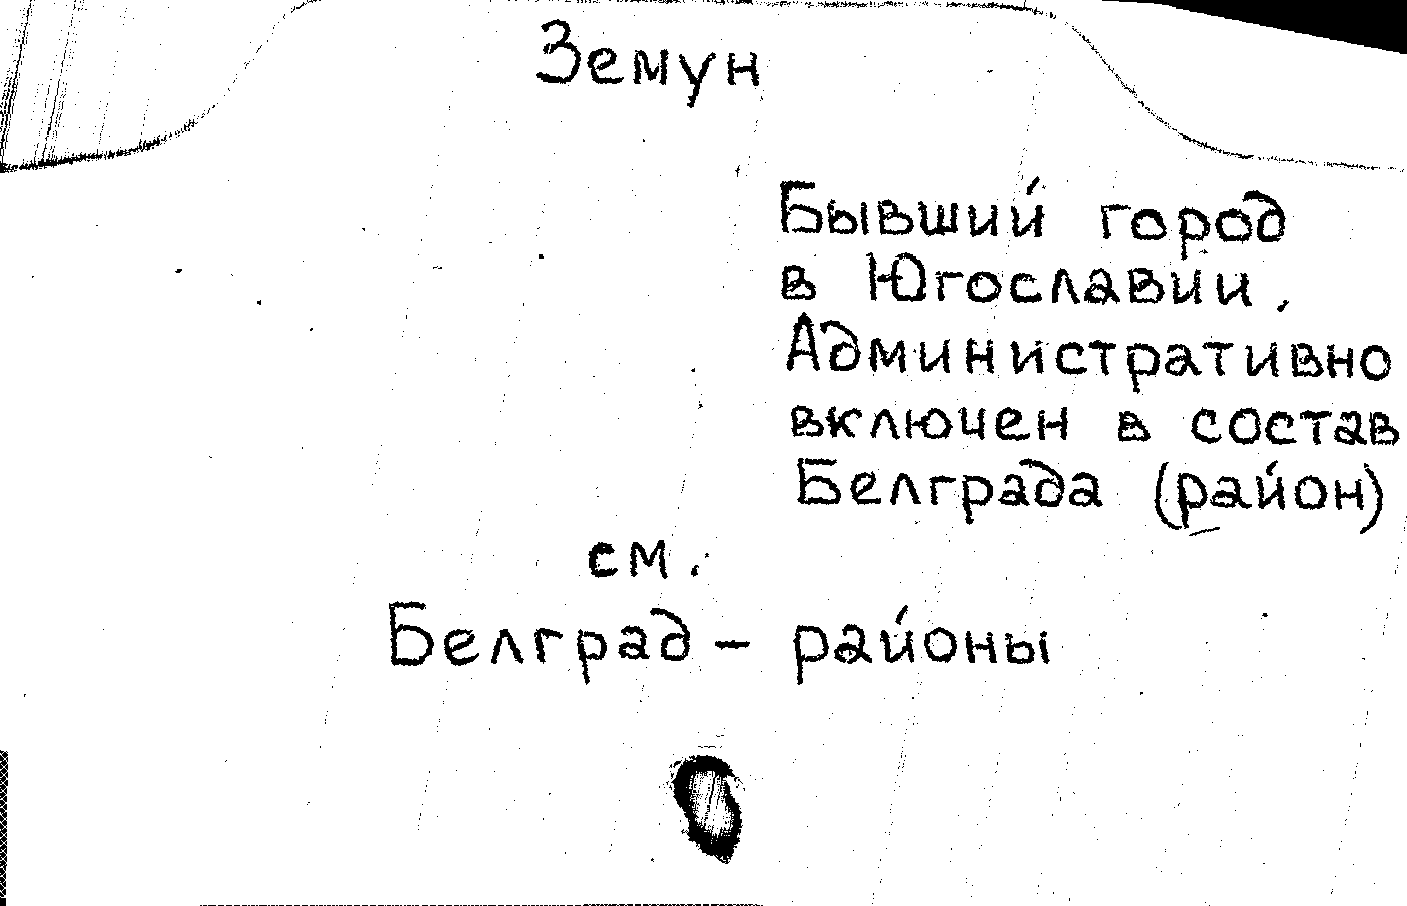 Земун
Бывший город
в Югославии.
Административно
включен в состав
Белграда (район)
см.
Белград - районы